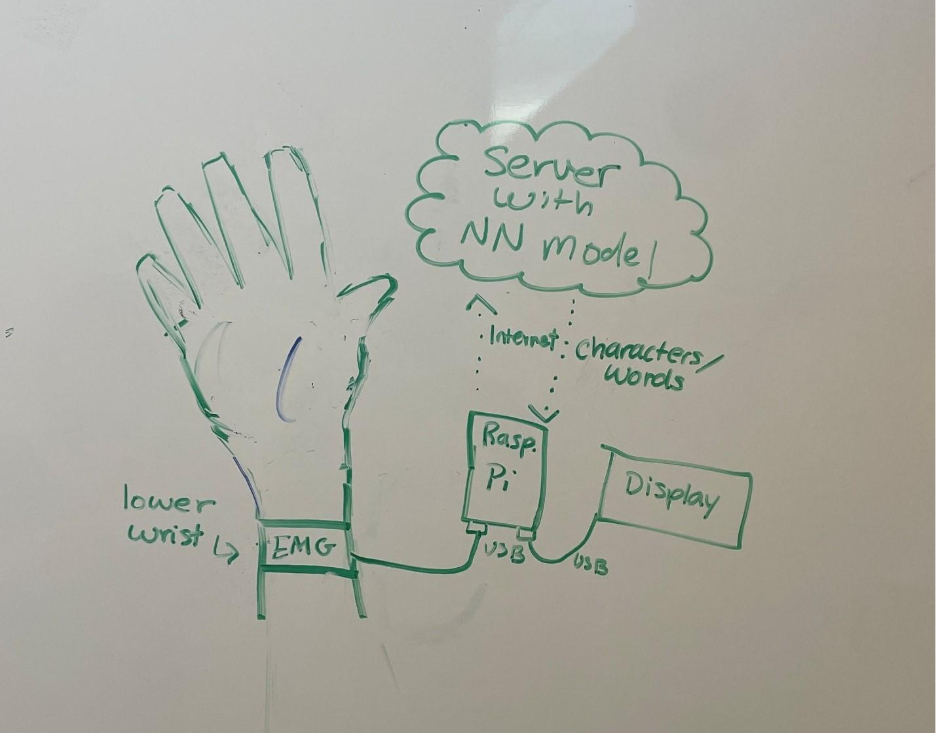 Server
with
NN model
Internet
Characters/
Words
Rasp.
Pi
Display
lower
wrist
EMG
USB
USB